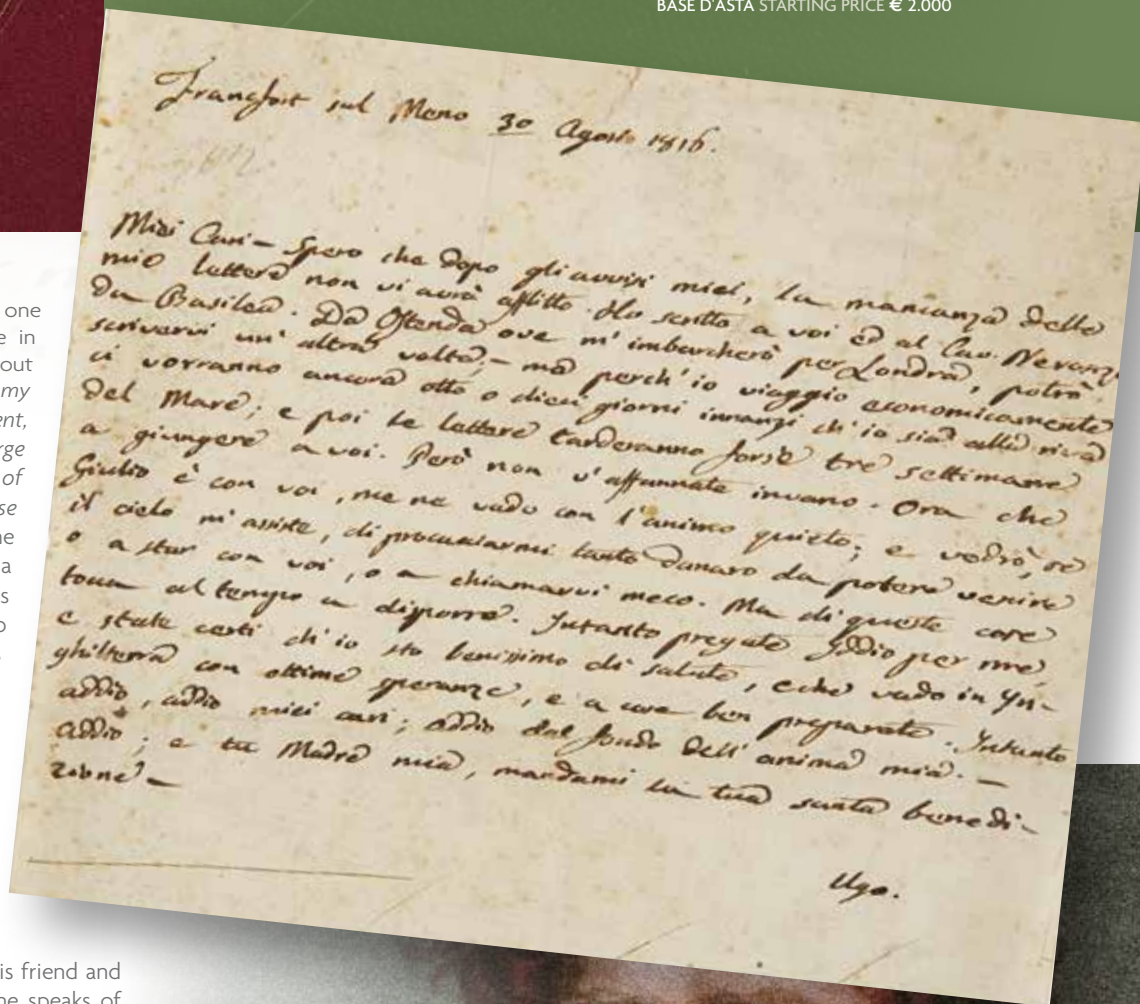 BASE D'ASTA STARTING PRICE € 2.000
Francfort sul Meno 30 Agosto 1816.
Miei Cari – Spero che dopo gli avvisi miei, la mancanza delle
mie lettere non vi avrà afflitto. Ho scritto a voi ed al Cav. Neranzi
da Basilea. Da Ostenda ove m'imbarcherò per Londra, potrò
scrivervi un'altra volta, – ma perch'io viaggio economicamente
ci vorranno ancora otto o dieci giorni innanzi ch'io sia alla riva
del Mare; e poi le lettere tarderanno forse tre settimane
a giungere a voi. Però non v'affannate invano. Ora che
Giulio è con voi, me ne vado con l'animo quieto; e vedrò, se
il cielo m'assiste, di procacciarmi tanto danaro da potere venire
o a star con voi, o a chiamarvi meco. Ma di queste cose
tocca al tempo a disporre. Intanto pregate Iddio per me,
e state certi ch'io sto benissimo di salute, e che vado in In-
ghilterra con ottime speranze, e a cose ben preparate. Intanto
addio, addio miei cari; addio dal fondo dell'anima mia. –
Addio; e tu Madre mia, mandami la tua santa benedi-
zione –
Ugo.
one
e in
out
my
ent,
rge
of
se
ne
a
s
o
is friend and
he speaks of